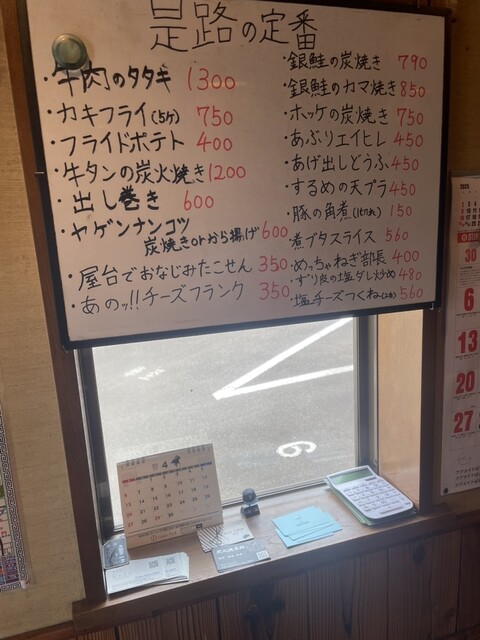 是路の定番
・牛肉のタタキ 1300
・カキフライ(5ケ) 750
・フライドポテト 400
・牛タンの炭火焼き 1200
・出し巻き 600
・ヤゲンナンコツ
炭焼きorから揚げ 600
・屋台でおなじみたこせん 350
・あのッ!!チーズフランク 350
・銀鮭の炭焼き 790
・銀鮭のカマ焼き 850
・ホッケの炭焼き 750
・あぶりエイヒレ 450
・あげ出しどうふ 450
・するめの天プラ 450
・豚の角煮 150
・煮ブタスライス 560
・めっちゃねぎ部長 400
・ずり皮の塩ダレ炒め 480
・塩チーズつくね 560
4
9
30
6
13
20
27